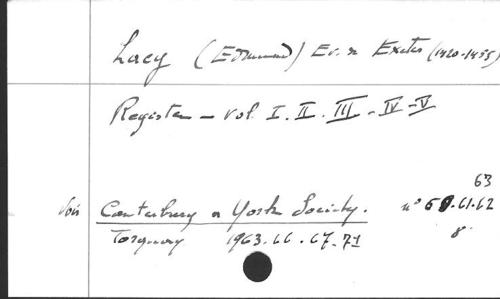 Lacy (Edmund) Ev. Exeter (1420-1455)
Register - Vol. I. II. III - IV - V
63
Voir Canterbury a York Society. n° 60.61.62
Torquay 1963.66.67.71 8°